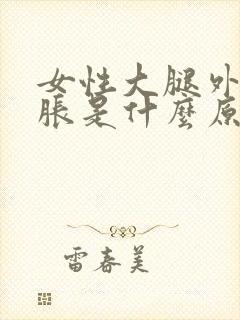 女性大腿外
脹是什麼原
雷春美